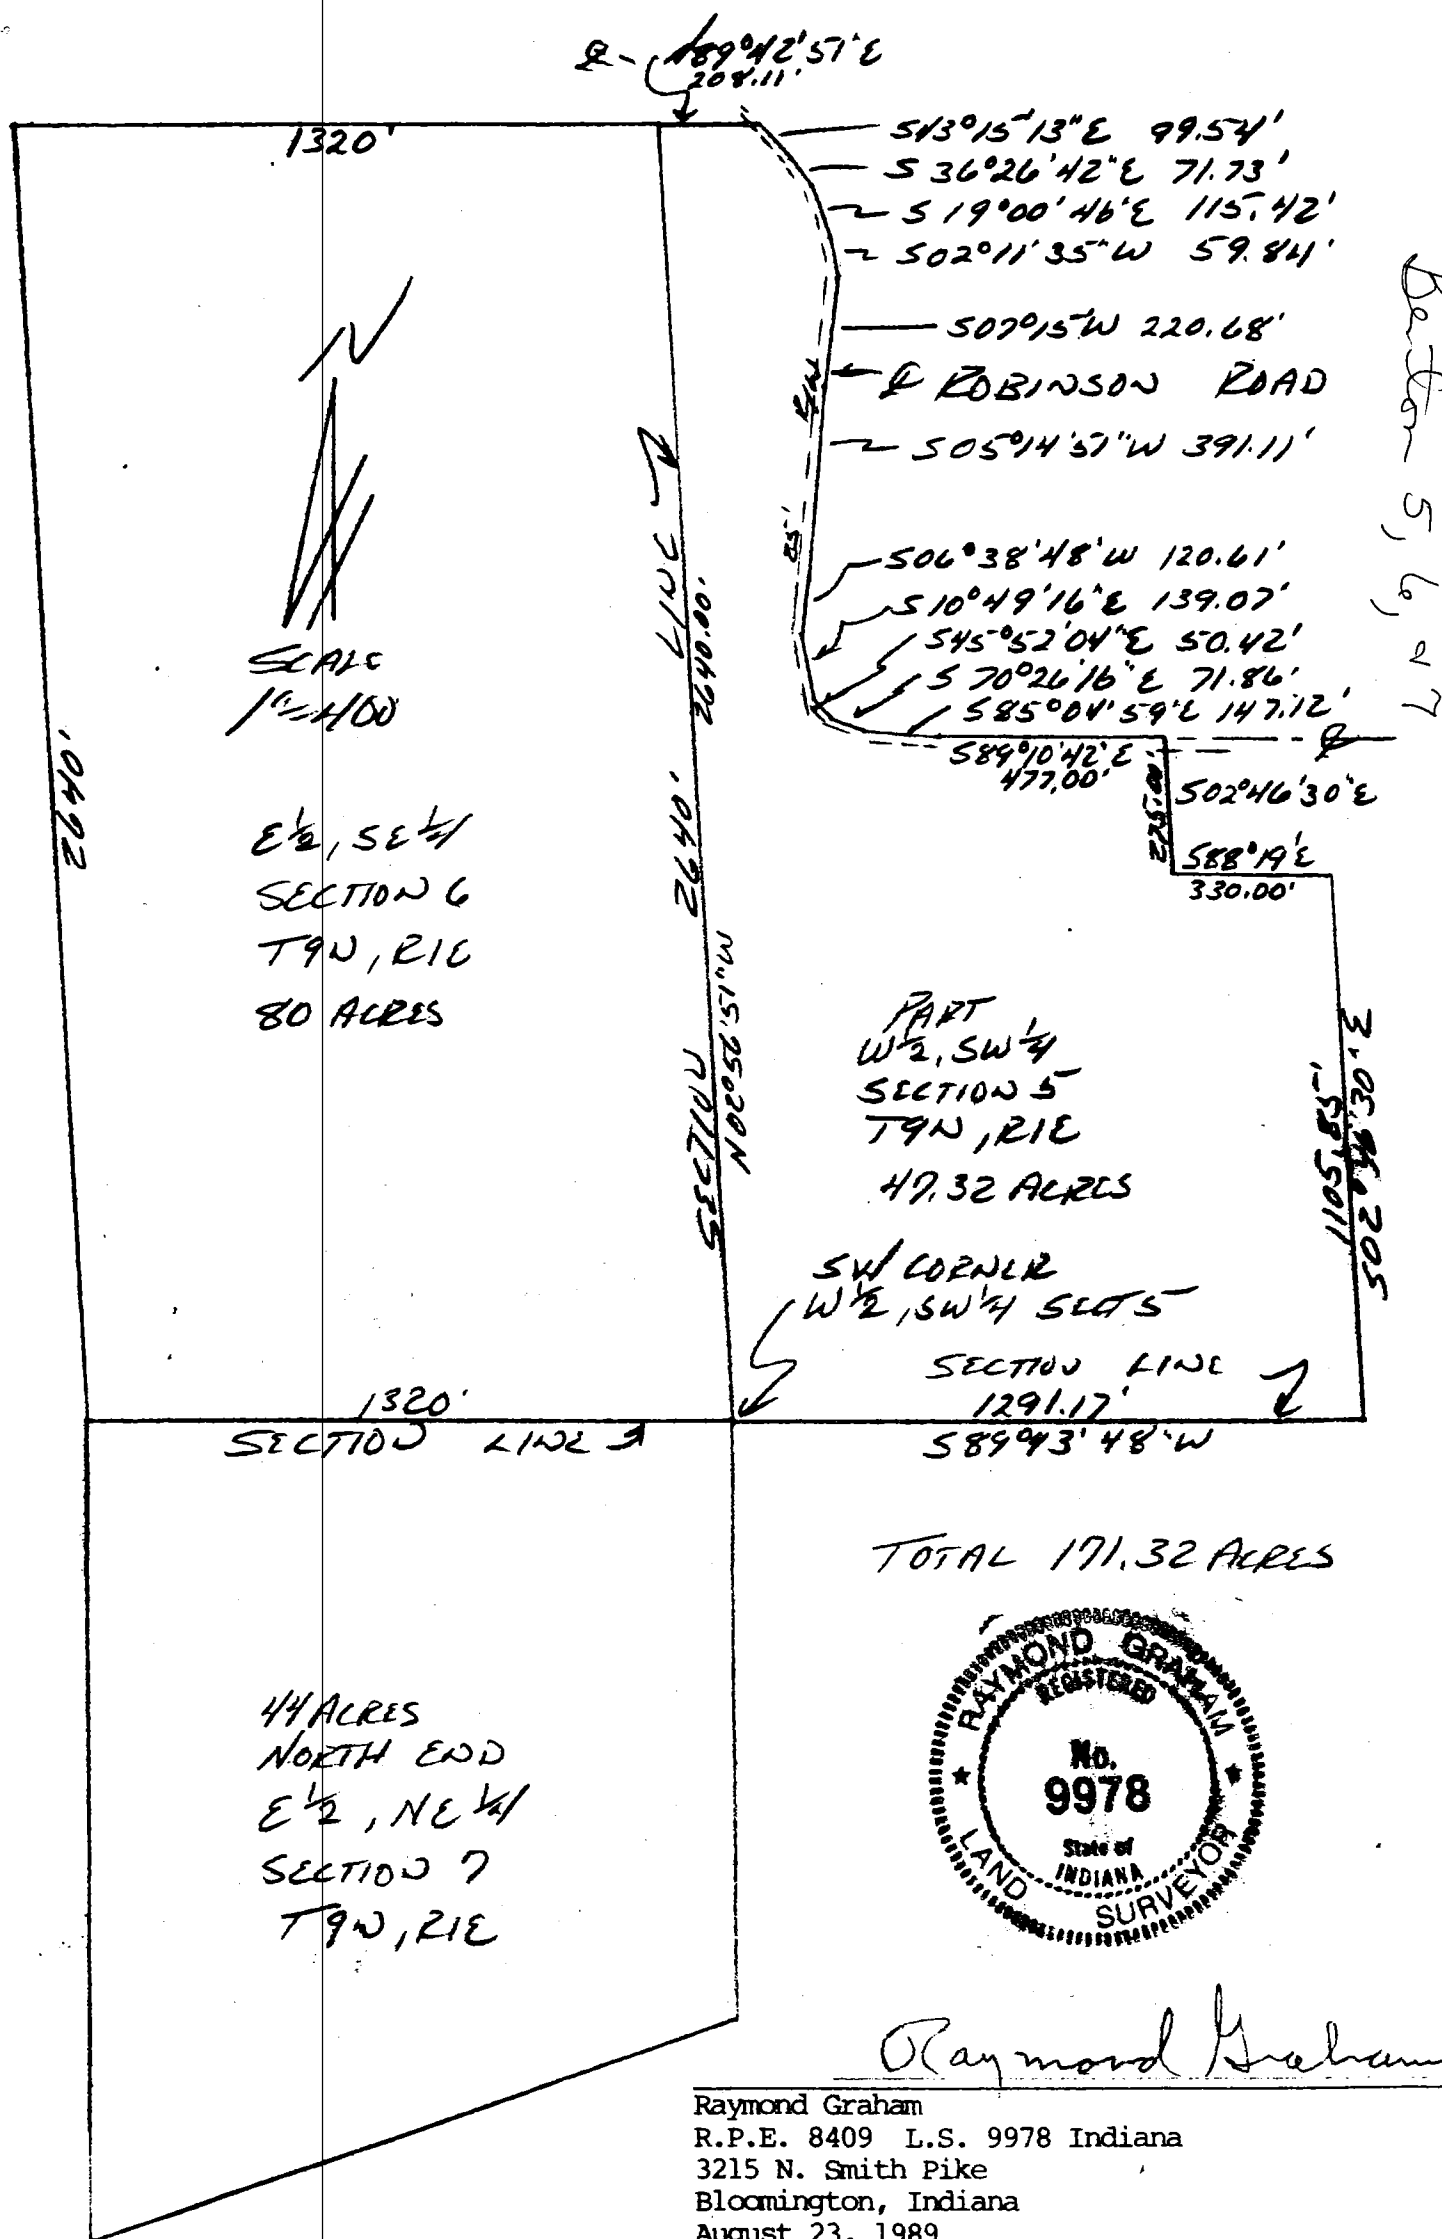 ℄ - N89°42'51"E
208.11'
1320'
S43°15'13"E 99.54'
S 36°26'42"E 71.73'
S 19°00'46"E 115.42'
S02°11'35"W 59.84'
S07°15'W 220.68'
℄ ROBINSON ROAD
R/W
S05°14'51"W 391.11'
25'
S06°38'48"W 120.61'
S10°49'16"E 139.07'
S45°52'04"E 50.42'
S 70°26'16"E 71.86'
S85°04'59"E 147.12'
S89°10'42"E
477.00'
℄
225.00'
S02°46'30"E
S88°19'E
330.00'
Benton 5, 6, & 7
N
SCALE
1"=400
2640'
E½, SE¼
SECTION 6
T9N, R1E
80 ACRES
SECTION 2640' LINE
N02°56'51"W 2640.00'
PART
W½, SW¼
SECTION 5
T9N, R1E
47.32 ACRES
1105.85'
SW CORNER
W½, SW¼ SECT 5
SECTION LINE
1291.17'
S89°43'48"W
1320'
SECTION LINE
TOTAL 171.32 ACRES
44 ACRES
NORTH END
E½, NE¼
SECTION 7
T9N, R1E
RAYMOND GRAHAM
REGISTERED
No.
9978
State of
INDIANA
LAND SURVEYOR
Raymond Graham
Raymond Graham
R.P.E. 8409 L.S. 9978 Indiana
3215 N. Smith Pike
Bloomington, Indiana
August 23, 1989